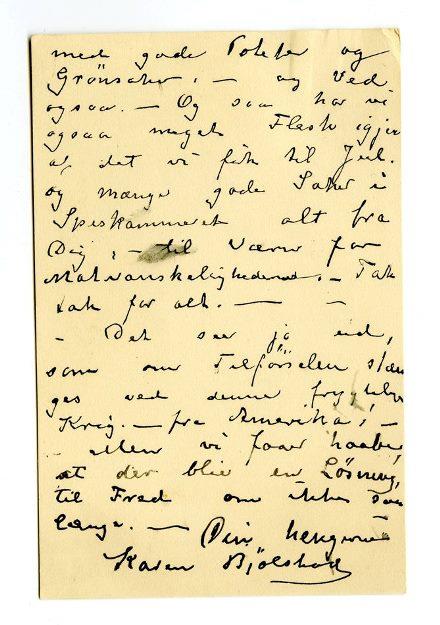 med gode Poteter og
Grönsaker, — og Ved
ogsaa. — Og saa har vi
ogsaa meget Flesk igjen
af det vi fik til Jul.
og mange gode Saker i
Spiskammeret alt fra
Dig, — til Værn for
Matvanskelighederne. — Tak
tak for alt. — —
- Det ser jo ud,
som om Tilförselen stæn
ges ved denne frygtelige
Krig. — fra Amerika; —
- Men vi faar haabe,
at der blir en Lösning,
til Fred om ikke saa
længe. — Din hengivne
Karen Bjölstad